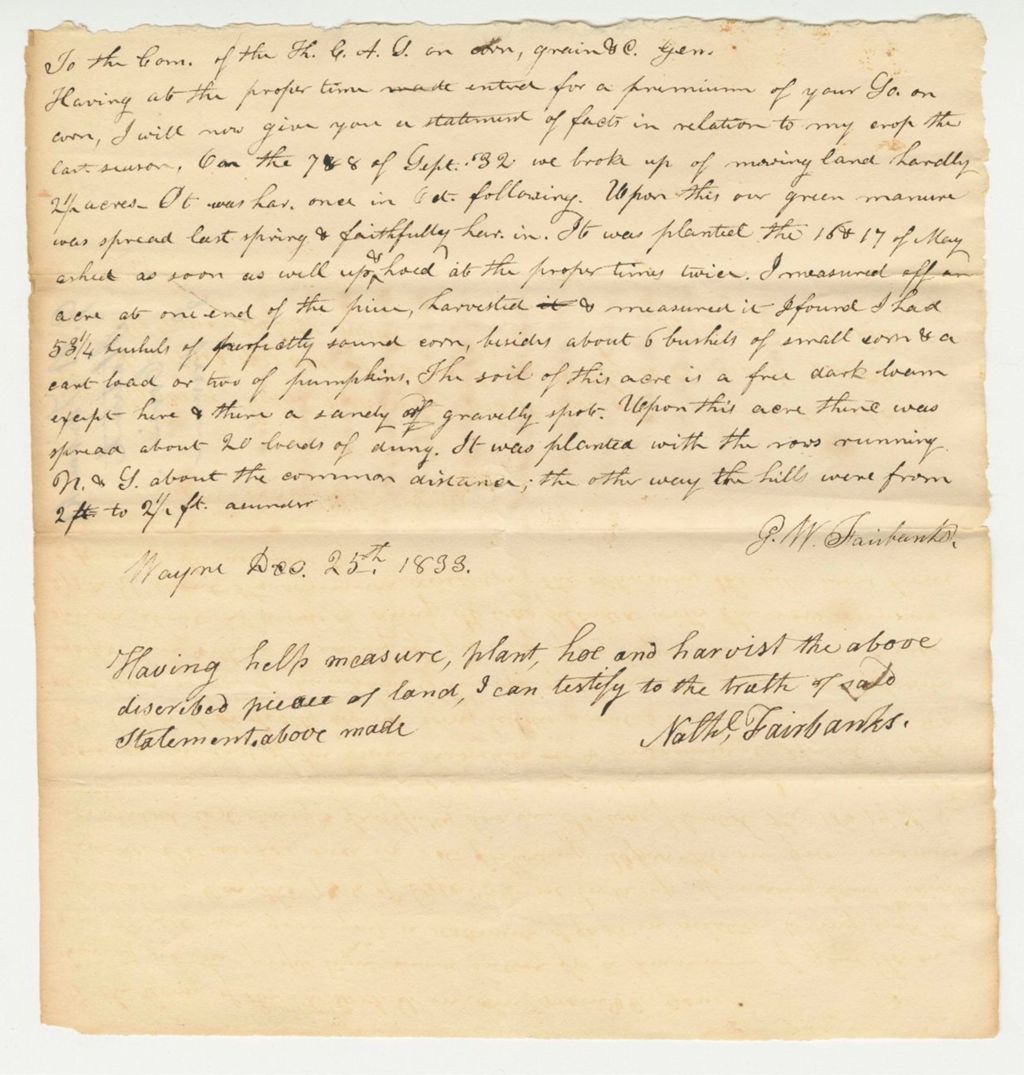 To the Com. of the K. C. A. S. on corn, grain &c. Gen.
Having at the proper time made entred for a premium of your So. on
corn, I will now give you a statement of facts in relation to my crop the
last season. On the 7 & 8 of Sept. '32 we broke up of mowing land hardly
2 1/2 acres. It was har. once in Oct. following. Upon this our green manure
was spread last spring & faithfully har. in. It was planted the 16 & 17 of May
ashed as soon as well up, & hoed at the proper times twice. I measured off an
acre at one end of the piece, harvested it & measured it I found I had
53 1/4 bushels of perfectly sound corn, besides about 6 bushels of small corn & a
cart load or two of pumpkins. The soil of this acre is a free dark loam
except here & there a sandy or gravelly spot. Upon this acre there was
spread about 20 loads of dung. It was planted with the rows running
N. & S. about the common distance; the other way the hills were from
2 ft. to 2 1/2 ft. asunder
G. W. Fairbanks.
Wayne Dec. 25th. 1833.
Having help measure, plant, hoe and harvist the above
discribed piece of land, I can testify to the truth of said
Statement above made
Nathl. Fairbanks.